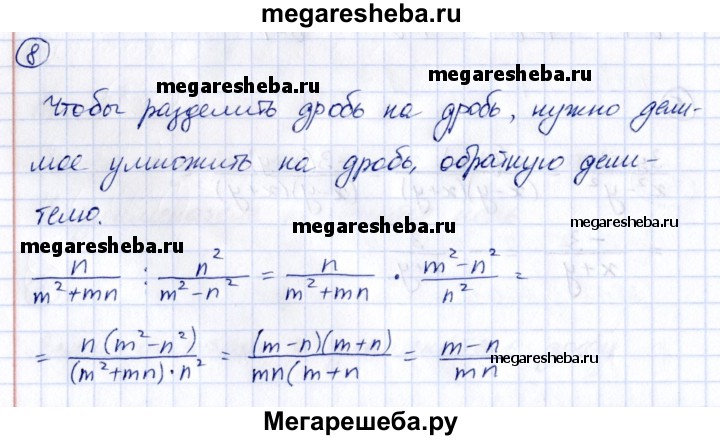 megaresheba.ru
8
megaresheba.ru megaresheba.ru
Чтобы разделить дробь на дробь, нужно дели-
мое умножить на дробь, обратную дели-
телю.
megaresheba.ru megaresheba.ru
n/(m²+mn) : n²/(m²-n²) = n/(m²+mn) · (m²-n²)/n² =
= n(m²-n²)/((m²+mn)·n²) = (m-n)(m+n)/(mn(m+n) = (m-n)/(mn)
megaresheba.ru
Мегарешеба.ру